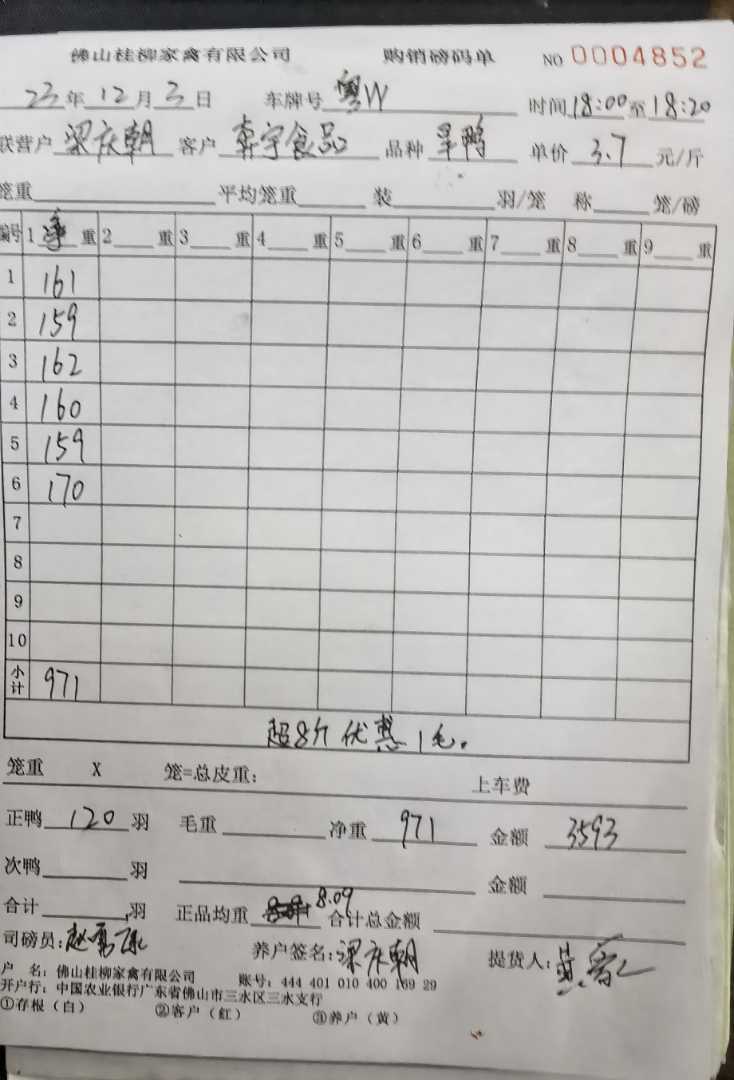 佛山桂柳家禽有限公司 购销磅码单 NO 0004852
23年12月3日 车牌号 粤W 时间18:00至18:20
联营户 梁庆朝 客户 宇食品 品种 旱鸭 单价 3.7 元/斤
笼重 平均笼重 装 羽/笼 称 笼/磅
编号 1 净 重 2 重 3 重 4 重 5 重 6 重 7 重 8 重 9 重
1 161
2 159
3 162
4 160
5 159
6 170
7
8
9
10
小计 971
超8斤优惠1毛.
笼重 X 笼=总皮重: 上车费
正鸭 120 羽 毛重 净重 971 金额 3593
次鸭 羽 金额
合计 羽 正品均重 8.09 合计总金额
司磅员: 赵 养户签名: 梁庆朝 提货人: 黄
户 名: 佛山桂柳家禽有限公司 账号: 444 401 010 400 169 29
开户行: 中国农业银行广东省佛山市三水区三水支行
①存根（白） ②客户（红） ③养户（黄）